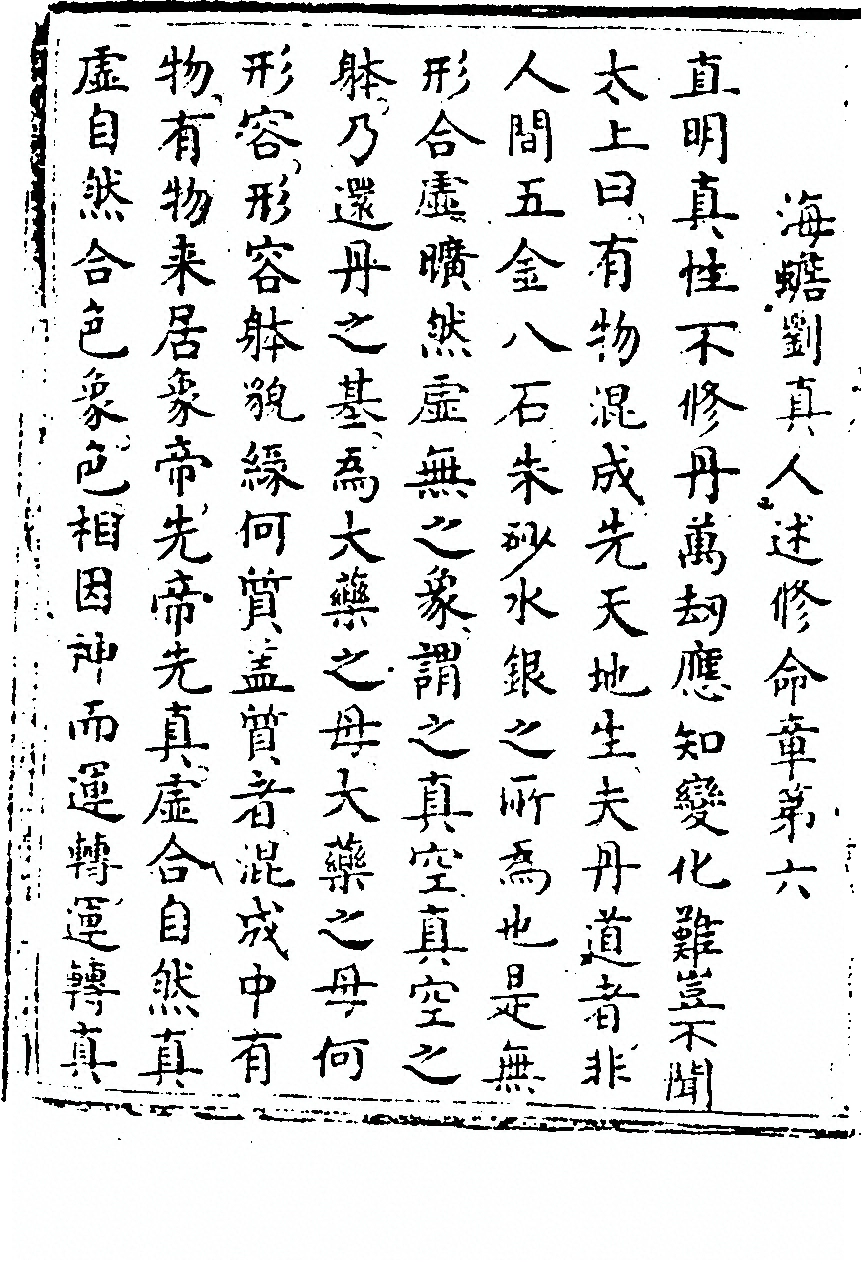 海蟾劉真人述修命章第六
直明真性不修丹萬刼應知變化難豈不聞
太上曰有物混成先天地生夫丹道者非
人間五金八石朱砂水銀之所為也是無
形合虛曠然虛無之象謂之真空真空之
躰乃還丹之基為大藥之母大藥之母何
形容形容躰貌緣何質盖質者混成中有
物有物来居象帝先帝先真虛合自然真
虛自然合色象色相因神而運轉運轉真